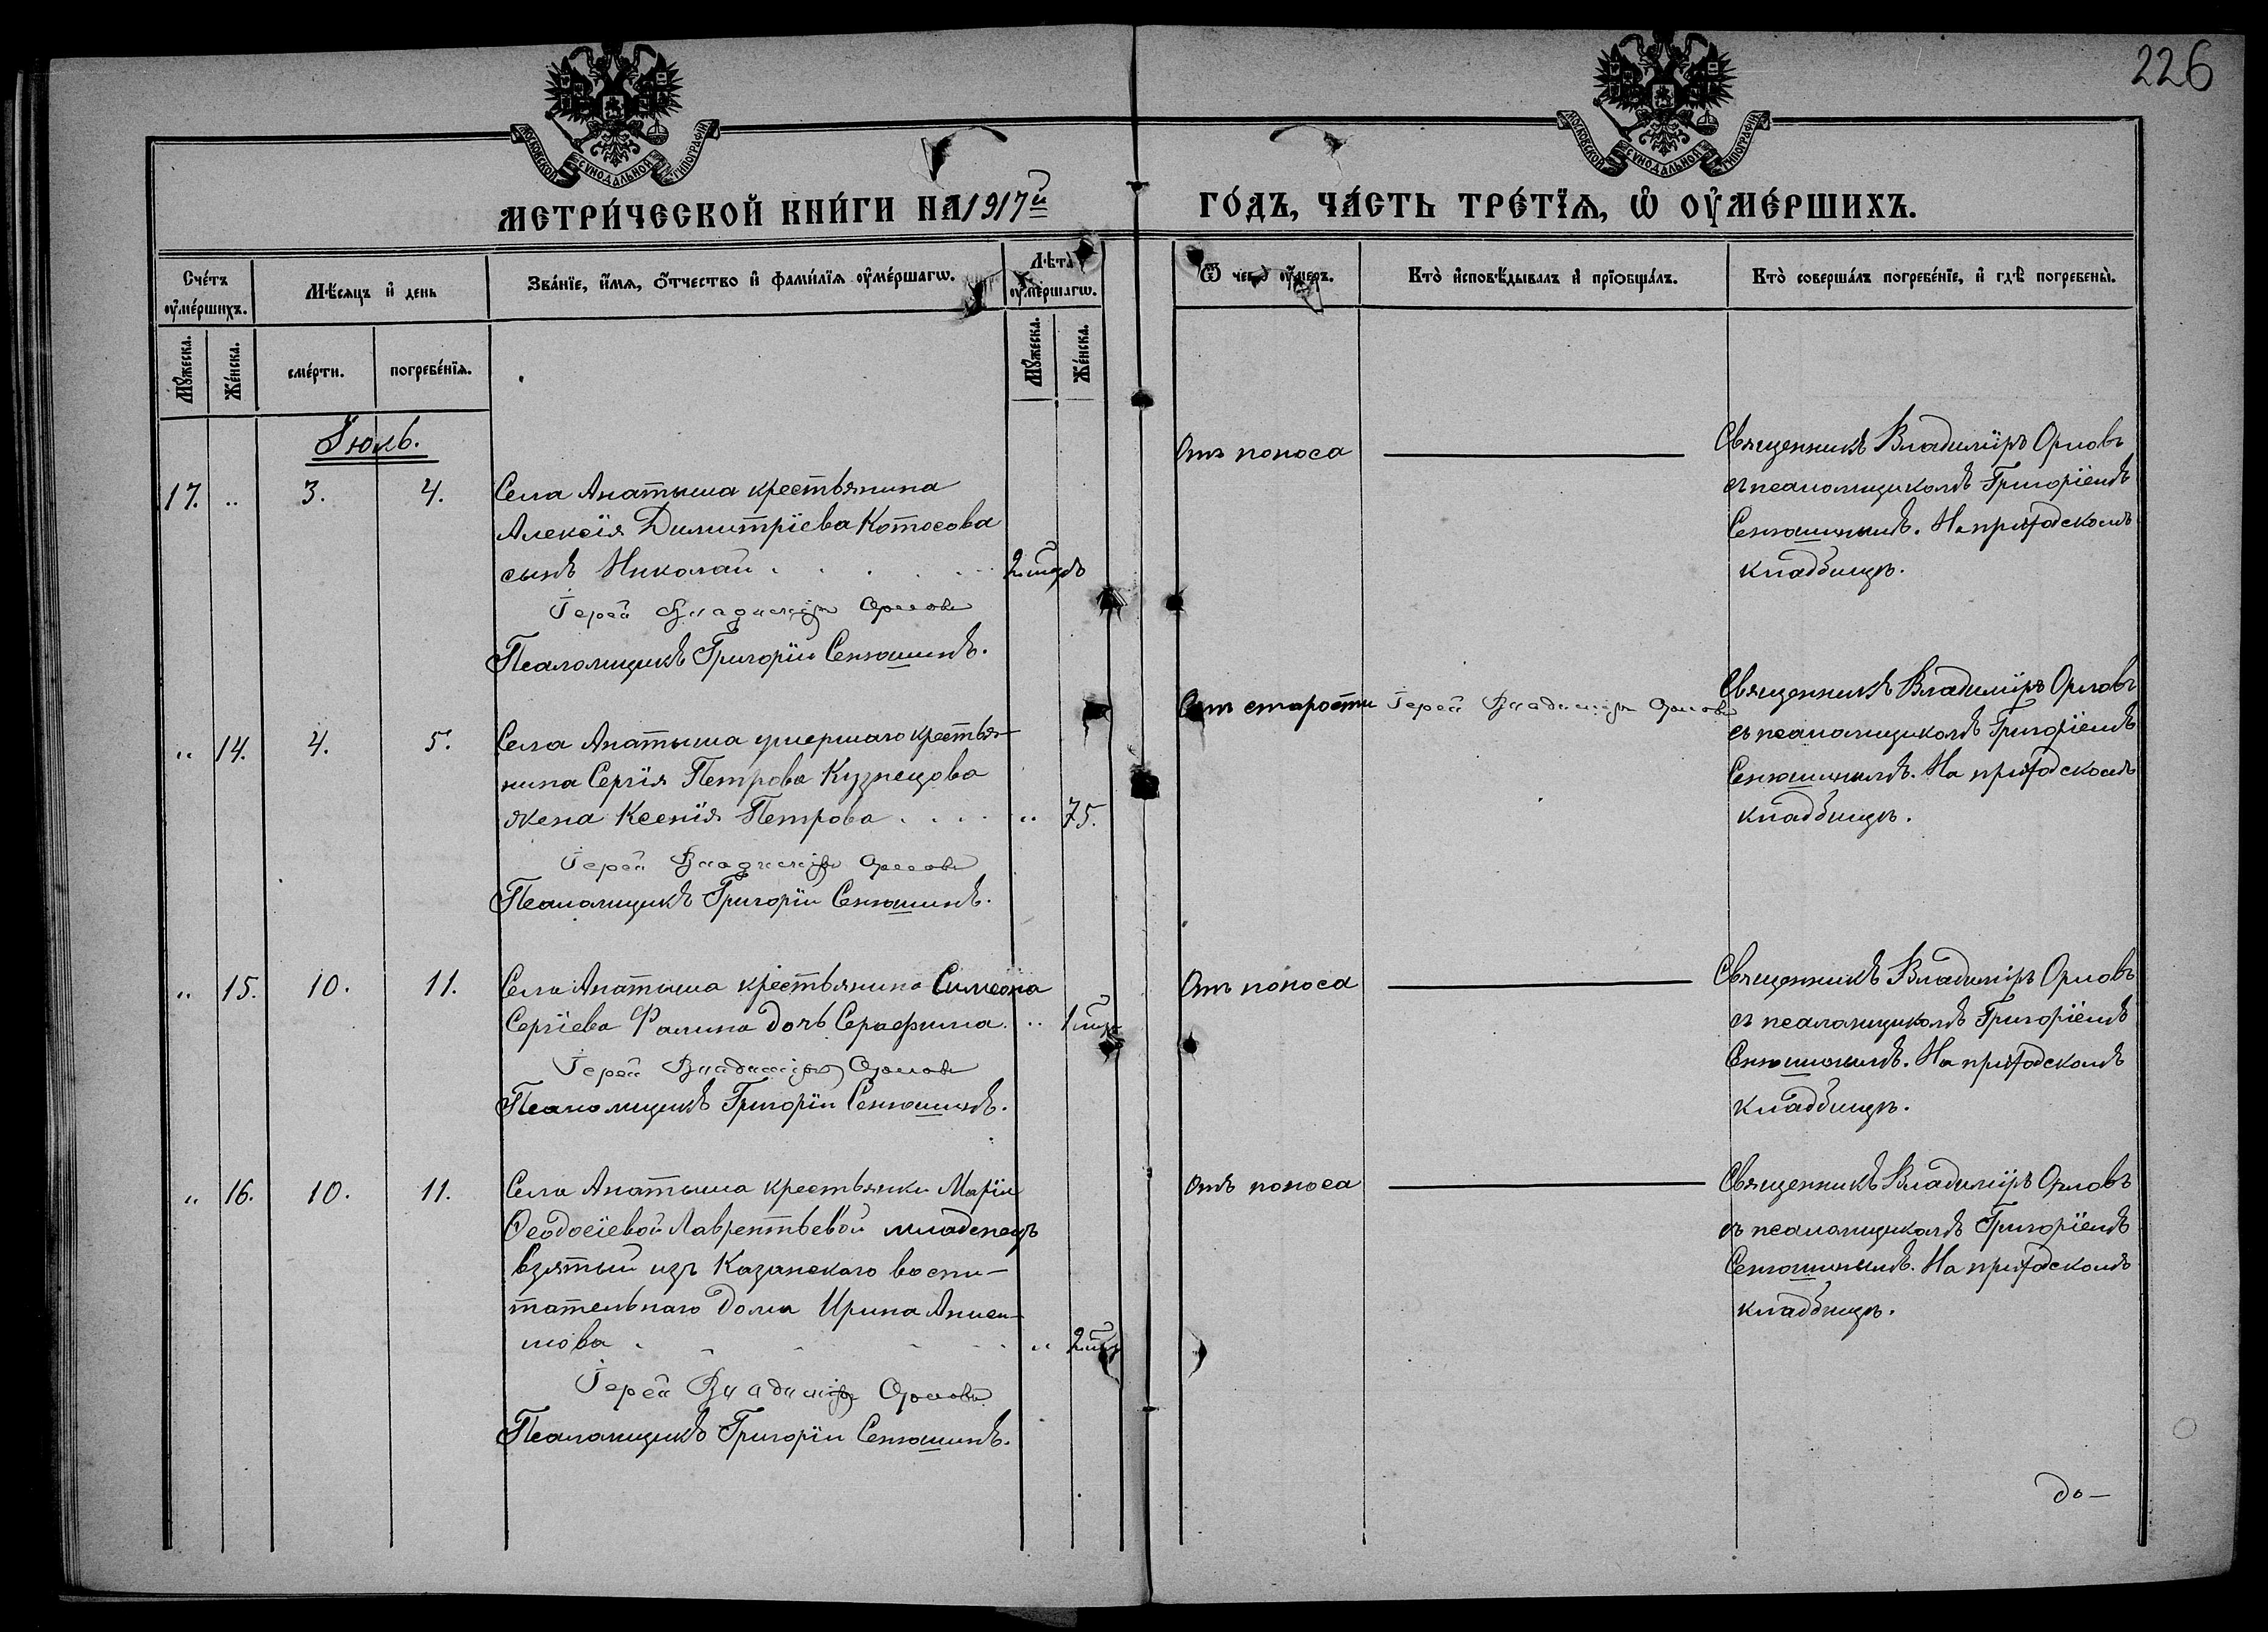 226
МОСКОВСКОЙ СѴНОДАЛЬНОЙ ТИПОГРАФІИ
МОСКОВСКОЙ СѴНОДАЛЬНОЙ ТИПОГРАФІИ
МЕТРИ́ЧЕСКОЙ КНИ́ГИ НА 1917й ГО́ДЪ, ЧА́СТЬ ТРЕ́ТЇѦ, Ѡ҆ ОУ҆МЕ́РШИХЪ.
Сче́тъ оу҆ме́ршихъ.
Мѣ́сѧцъ и҆ день
Зва́нїе, и҆́мѧ, ѻ҆́тчество и҆ фами́лїѧ оу҆ме́ршагѡ.
Лѣ́та оу҆ме́ршагѡ.
Ѿ чегѡ̀ оу҆́меръ.
Кто̀ и҆сповѣ́дывалъ и҆ прїѻбща́лъ.
Кто̀ соверша́лъ погребе́нїе, и҆ гдѣ̀ погребены̀.
Мꙋ́жеска.
Же́нска.
сме́рти.
погребе́нїѧ.
Мꙋ́жеска.
Же́нска.
Іюль.
17. „ 3. 4.
Села Анатыша крестьянина
Алексія Димитріева Котосова
сынъ Николай . . . . . 2 мцъ
Іерей Владиміръ Орловъ
Псаломщикъ Григорій Сенюшинъ.
Отъ поноса
Священникъ Владиміръ Орловъ
съ псаломщикомъ Григоріемъ
Сенюшинымъ. На приходскомъ
кладбищѣ.
„ 14. 4. 5.
Села Анатыша умершаго крестья-
нина Сергія Петрова Кузнецова
жена Ксенія Петрова . . . . „ 75.
Іерей Владиміръ Орловъ
Псаломщикъ Григорій Сенюшинъ.
Отъ старости
Іерей Владиміръ Орловъ
Священникъ Владиміръ Орловъ
съ псаломщикомъ Григоріемъ
Сенюшинымъ. На приходскомъ
кладбищѣ.
„ 15. 10. 11.
Села Анатыша крестьянина Симеона
Сергіева Фалина дочь Серафима. „ 1 мцъ
Іерей Владиміръ Орловъ
Псаломщикъ Григорій Сенюшинъ.
Отъ поноса
Священникъ Владиміръ Орловъ
съ псаломщикомъ Григоріемъ
Сенюшинымъ. На приходскомъ
кладбищѣ.
„ 16. 10. 11.
Села Анатыша крестьянки Маріи
Ѳеодосіевой Лаврентьевой младенецъ
взятый изъ Казанскаго воспи-
тательнаго дома Ирина
мова . . . . . „ 2 мцъ
Іерей Владиміръ Орловъ
Псаломщикъ Григорій Сенюшинъ.
Отъ поноса
Священникъ Владиміръ Орловъ
съ псаломщикомъ Григоріемъ
Сенюшинымъ. На приходскомъ
кладбищѣ.
до-